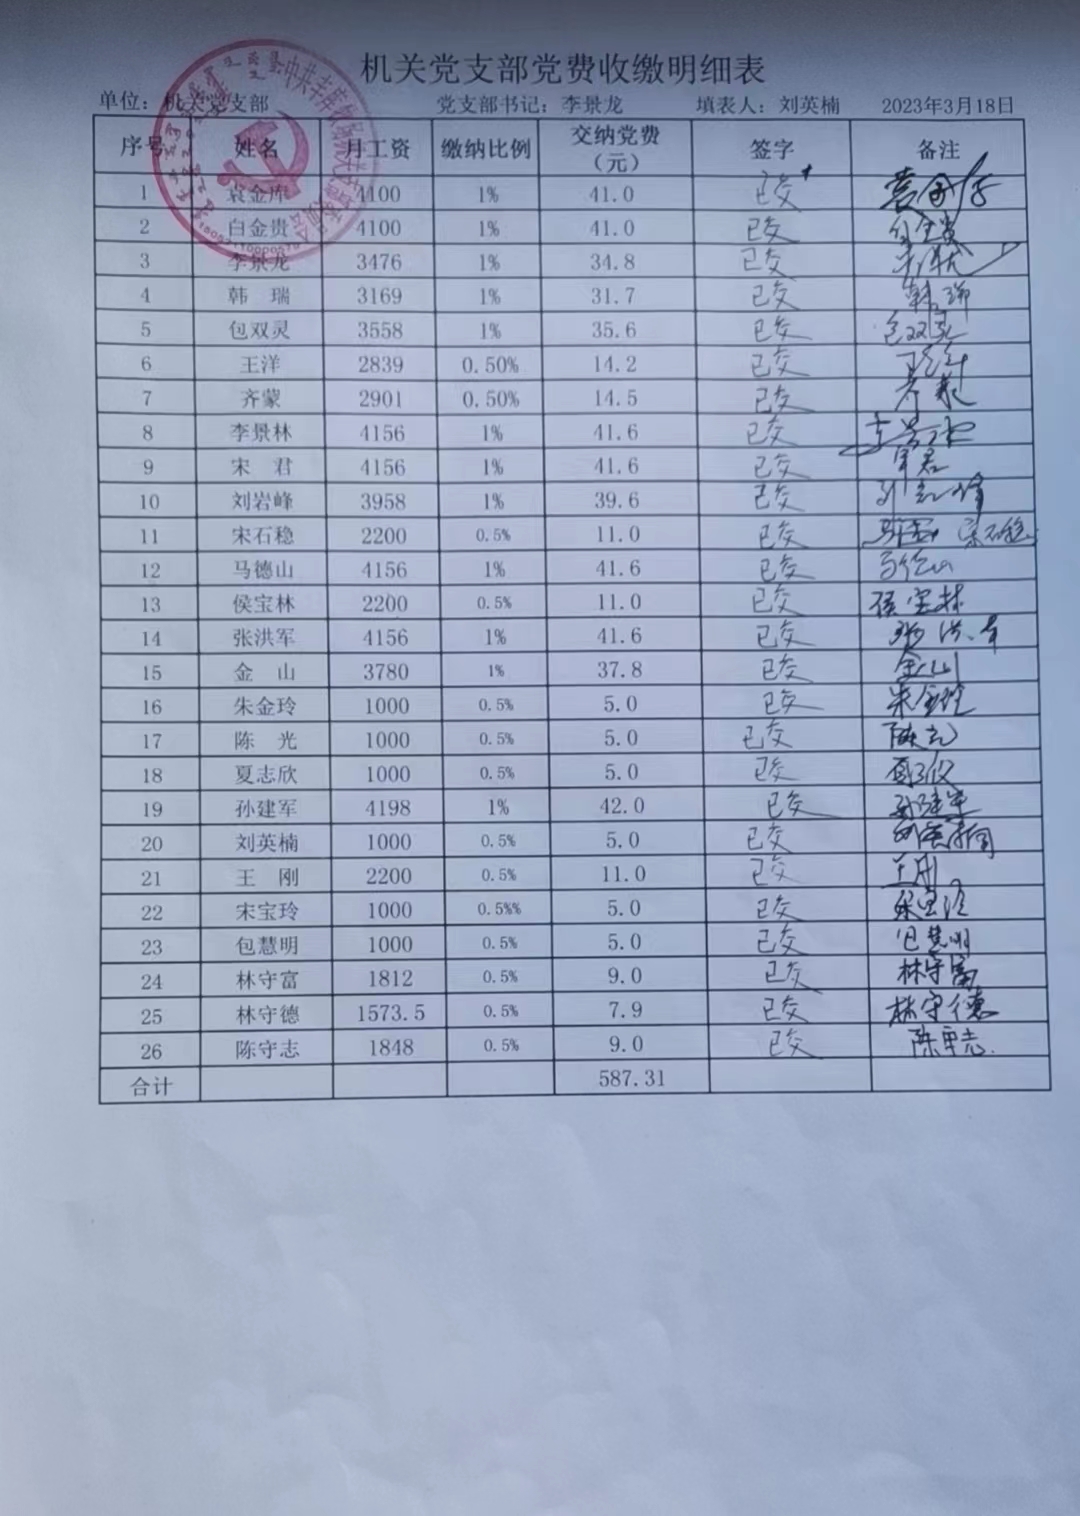 机关党支部党费收缴明细表
单位：机关党支部 党支部书记：李景龙 填表人：刘英楠 2023年3月18日
序号 姓名 月工资 缴纳比例 交纳党费（元） 签字 备注
1 袁金库 4100 1% 41.0 已交
2 白金贵 4100 1% 41.0 已交 白金贵
3 李景龙 3476 1% 34.8 已交
4 韩 瑞 3169 1% 31.7 已交 韩瑞
5 包双灵 3558 1% 35.6 已交 包双灵
6 王洋 2839 0.50% 14.2 已交
7 齐蒙 2901 0.50% 14.5 已交
8 李景林 4156 1% 41.6 已交 李景林
9 宋 君 4156 1% 41.6 已交 宋君
10 刘岩峰 3958 1% 39.6 已交 刘岩峰
11 宋石稳 2200 0.5% 11.0 已交 宋石稳
12 马德山 4156 1% 41.6 已交 马德山
13 侯宝林 2200 0.5% 11.0 已交 侯宝林
14 张洪军 4156 1% 41.6 已交 张洪军
15 金 山 3780 1% 37.8 已交 金山
16 朱金玲 1000 0.5% 5.0 已交 朱金玲
17 陈 光 1000 0.5% 5.0 已交 陈光
18 夏志欣 1000 0.5% 5.0 已交
19 孙建军 4198 1% 42.0 已交 孙建军
20 刘英楠 1000 0.5% 5.0 已交 刘英楠
21 王 刚 2200 0.5% 11.0 已交 王刚
22 宋宝玲 1000 0.5%% 5.0 已交 宋宝玲
23 包慧明 1000 0.5% 5.0 已交 包慧明
24 林守富 1812 0.5% 9.0 已交 林守富
25 林守德 1573.5 0.5% 7.9 已交 林守德
26 陈守志 1848 0.5% 9.0 已交 陈守志
合计 587.31